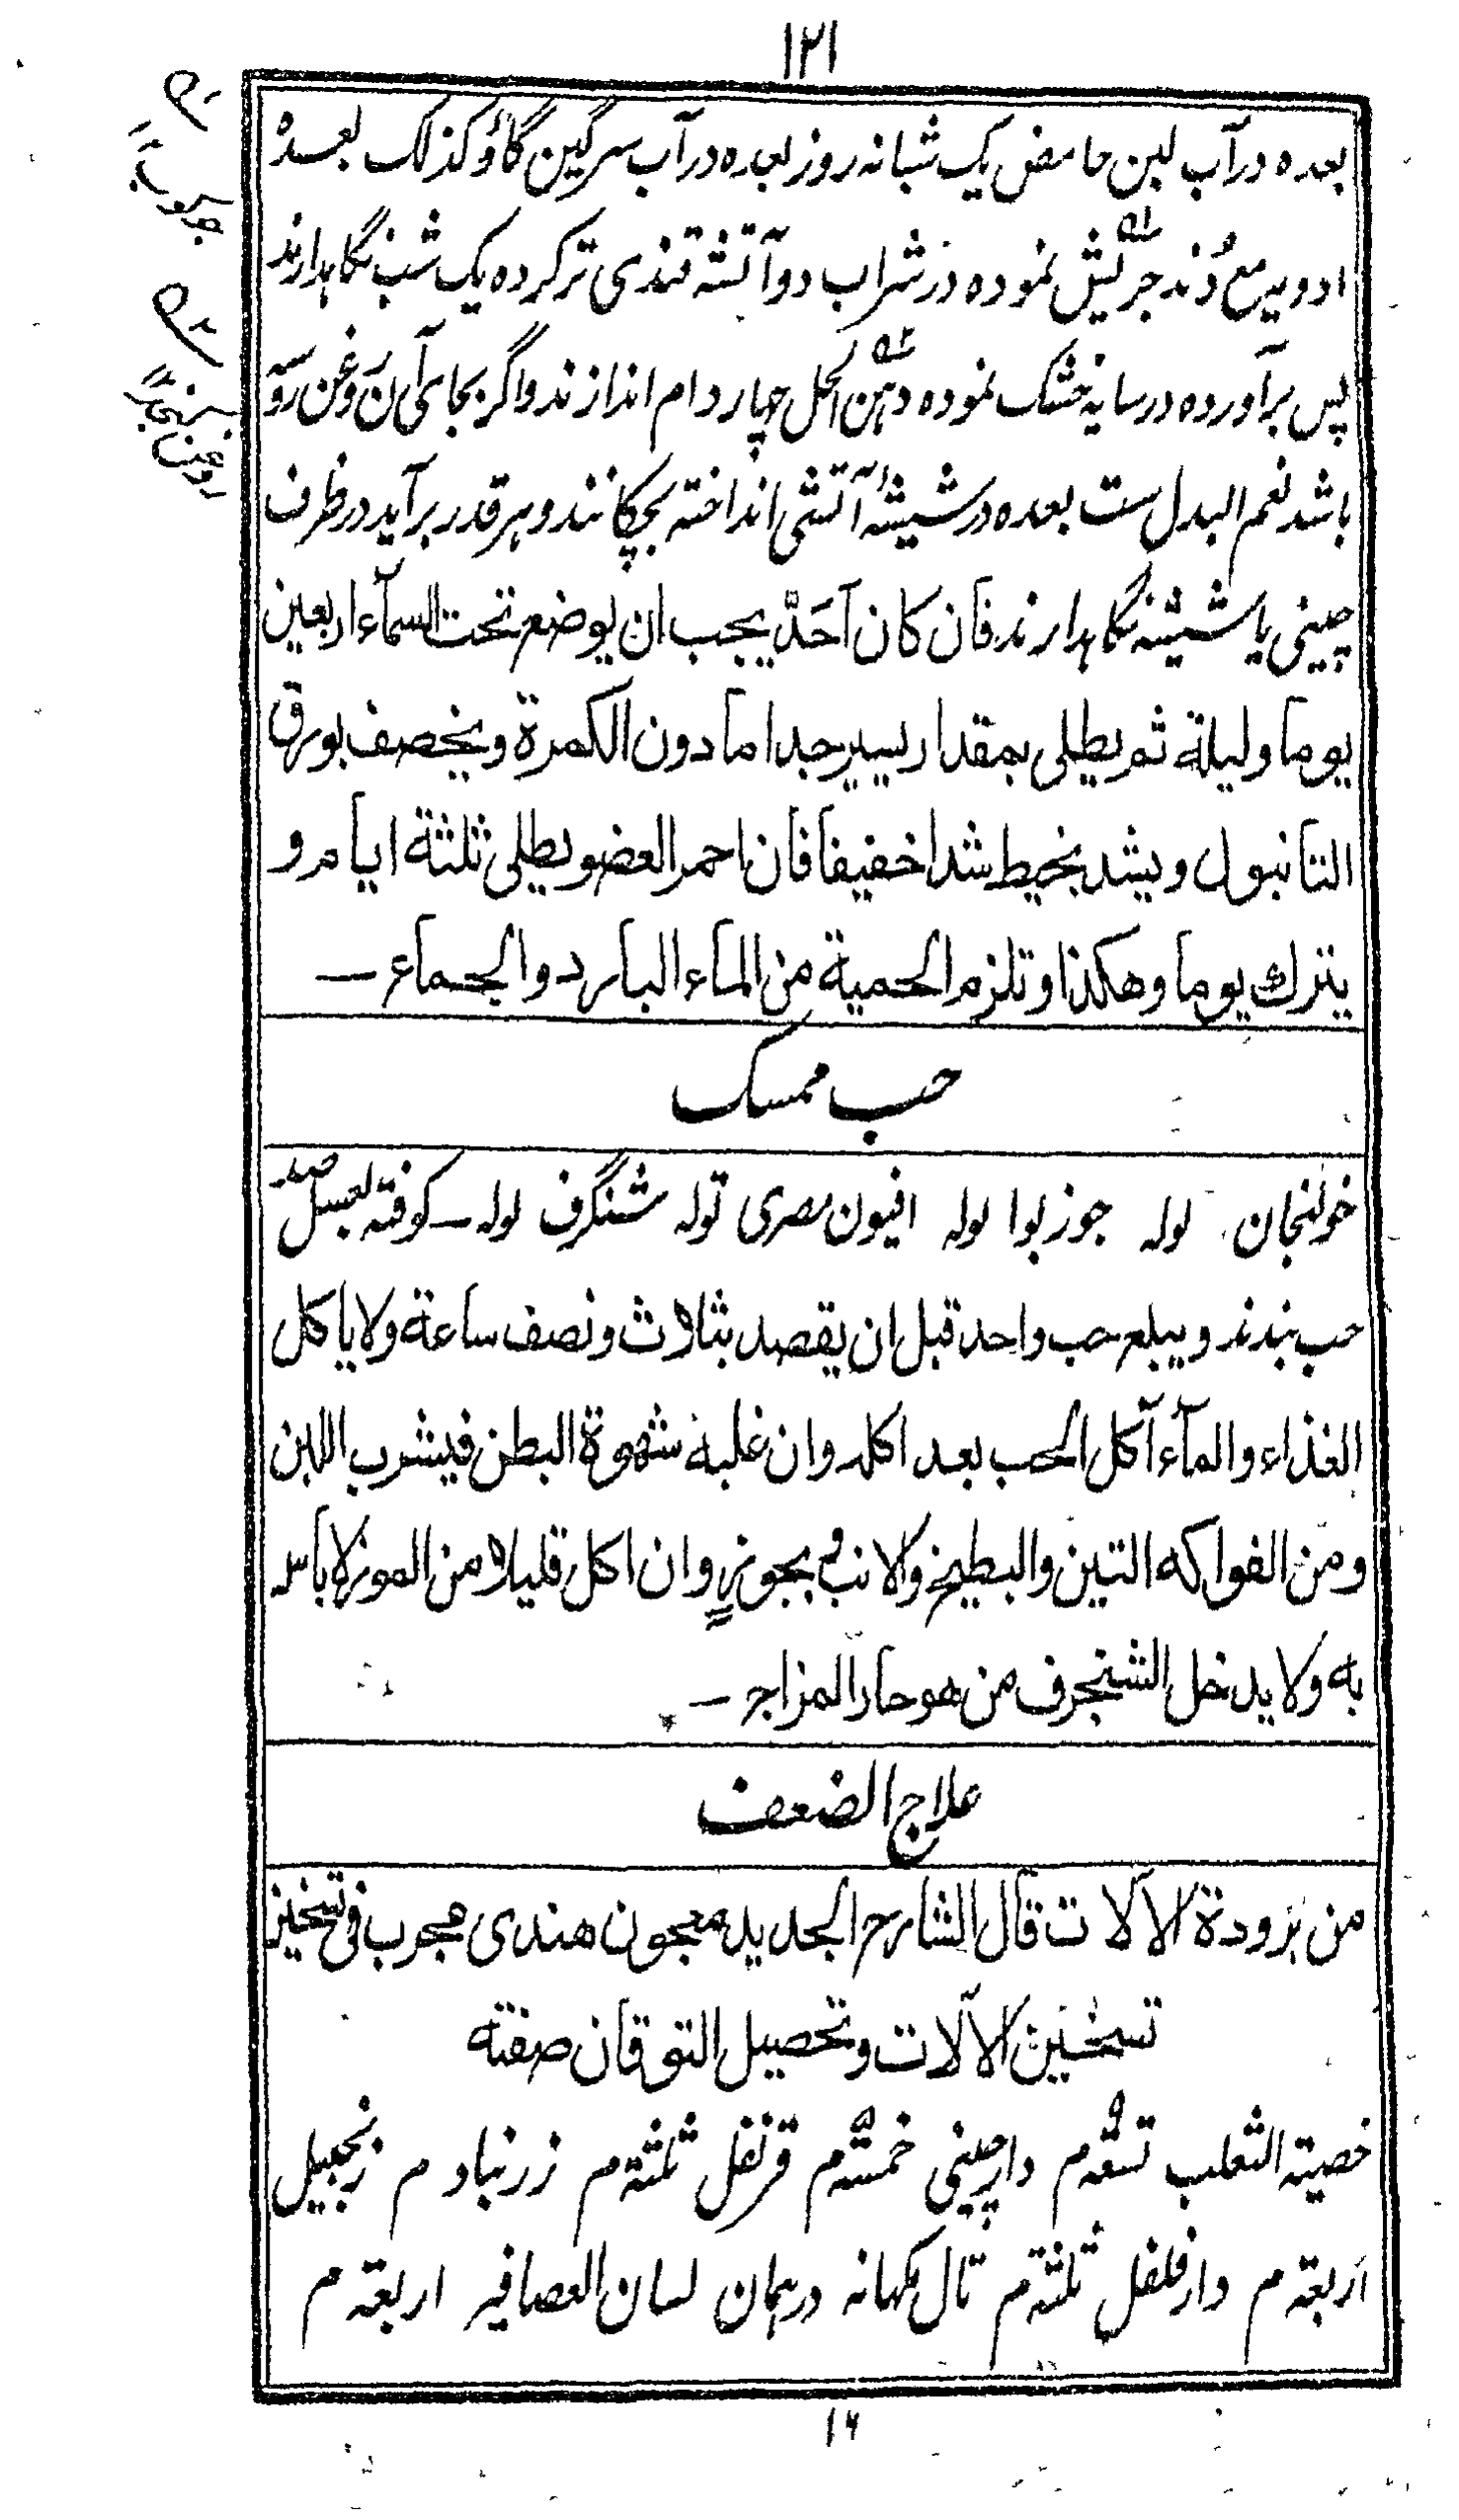 ۱۲۱
بعده در آب لبن حامض یک شبانه روز بعده در آب سرگین گاؤ کذلک بعده
ادویه مع دُند جریش نموده در شراب دو آتشه قندی تر کرده یک شب نگاہدارند
پس برآورده در سایه خشک نموده دہن الحل چہار دام اندازند و اگر بجای آن روغن
باشد نعم البدل ست بعده در شیشهٔ آتشی انداخته بچکانند و ہر قدر برآید در ظرف
چینی یا شیشه نگاہدارند فان کان اَحَدّ یجب ان یوضع تحت السمآء اربعین
یوما ولیلة ثم یطلی بمقدار یسیر جدا ما دون الکمرة ویخصف بورق
التانبول ویشد بخیط شدا خفیفا فان احمر العضو یطلی ثلثة ایام و
یترك یوما وهکذا وتلزم الحمیة من الماء البارد والجماع ــ
حب ممسک
خولنجان توله جوزبوا توله افیون مصری توله شنگرف توله ــ کوفته بعسل
حب بندند ویبلع حب واحد قبل ان یقصد بثلاث ونصف ساعة ولا یاکل
الغذاء والمآء آکل الحب بعد اکله وان غلبه شهوة البطن فیشرب اللبن
ومن الفواکه التین والبطیخ والانب یجوز وان اکل قلیلا من الموز لاباس
به ولا یدخل الشنجرف من هو حار المزاج ــ
علاج الضعف
من برودة الالات قال الشارح الجدید معجون هندی مجرب فی تسخین
تسخین الالات وتحصیل التوقان صفته
خصیته الثعلب تسعه م دارچینی خمسه م قرنفل ثلثه م زرنباد م زنجبیل
اربعة م دارفلفل ثلثة م تال مکہانه درہمان لسان العصافیر اربعة م
۱۶